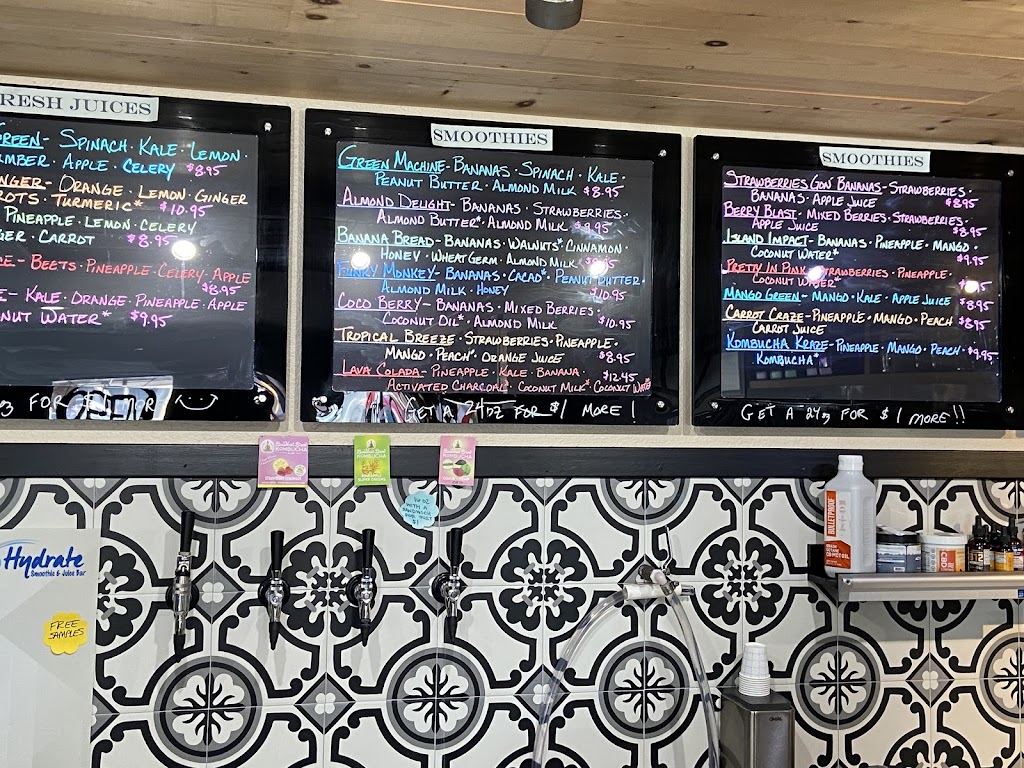 RESH JUICES
REEN- SPINACH · KALE · LEMON ·
MBER · APPLE · CELERY $8.95
NGER- ORANGE · LEMON · GINGER
ROTS · TURMERIC* $10.95
PINEAPPLE · LEMON · CELERY
GER · CARROT $8.95
E- BEETS · PINEAPPLE · CELERY · APPLE
$8.95
E- KALE · ORANGE · PINEAPPLE · APPLE
NUT WATER* $9.95
FOR $1
SMOOTHIES
GREEN MACHINE- BANANAS · SPINACH · KALE ·
PEANUT BUTTER · ALMOND MILK $8.95
ALMOND DELIGHT- BANANAS · STRAWBERRIES ·
ALMOND BUTTER* · ALMOND MILK $9.95
BANANA BREAD- BANANAS · WALNUTS* · CINNAMON ·
HONEY · WHEAT GERM · ALMOND MILK
FUNKY MONKEY- BANANAS · CACAO* · PEANUT BUTTER ·
ALMOND MILK · HONEY $10.95
COCO BERRY- BANANAS · MIXED BERRIES ·
COCONUT OIL* · ALMOND MILK $10.95
TROPICAL BREEZE · STRAWBERRIES · PINEAPPLE ·
MANGO · PEACH* · ORANGE JUICE $8.95
LAVA COLADA- PINEAPPLE · KALE · BANANA · $12.45
ACTIVATED CHARCOAL* · COCONUT MILK* · COCONUT WATER
GET A 24OZ FOR $1 MORE!
SMOOTHIES
STRAWBERRIES GON' BANANAS- STRAWBERRIES ·
BANANAS · APPLE JUICE $8.95
BERRY BLAST- MIXED BERRIES · STRAWBERRIES ·
APPLE JUICE $8.95
ISLAND IMPACT- BANANAS · PINEAPPLE · MANGO ·
COCONUT WATER* $9.95
PRETTY IN PINK- STRAWBERRIES · PINEAPPLE ·
COCONUT WATER*
MANGO GREEN- MANGO · KALE · APPLE JUICE $8.95
CARROT CRAZE- PINEAPPLE · MANGO · PEACH
CARROT JUICE $8.95
KOMBUCHA KRAZE- PINEAPPLE · MANGO · PEACH · $9.95
KOMBUCHA*
GET A 24oz FOR $1 MORE!!
KOMBUCHA
KOMBUCHA
KOMBUCHA
16 OZ
WITH A
SANDWICH
FOR JUST
$1
Hydrate
Smoothie & Juice Bar
FREE
SAMPLES
BULLETPROOF